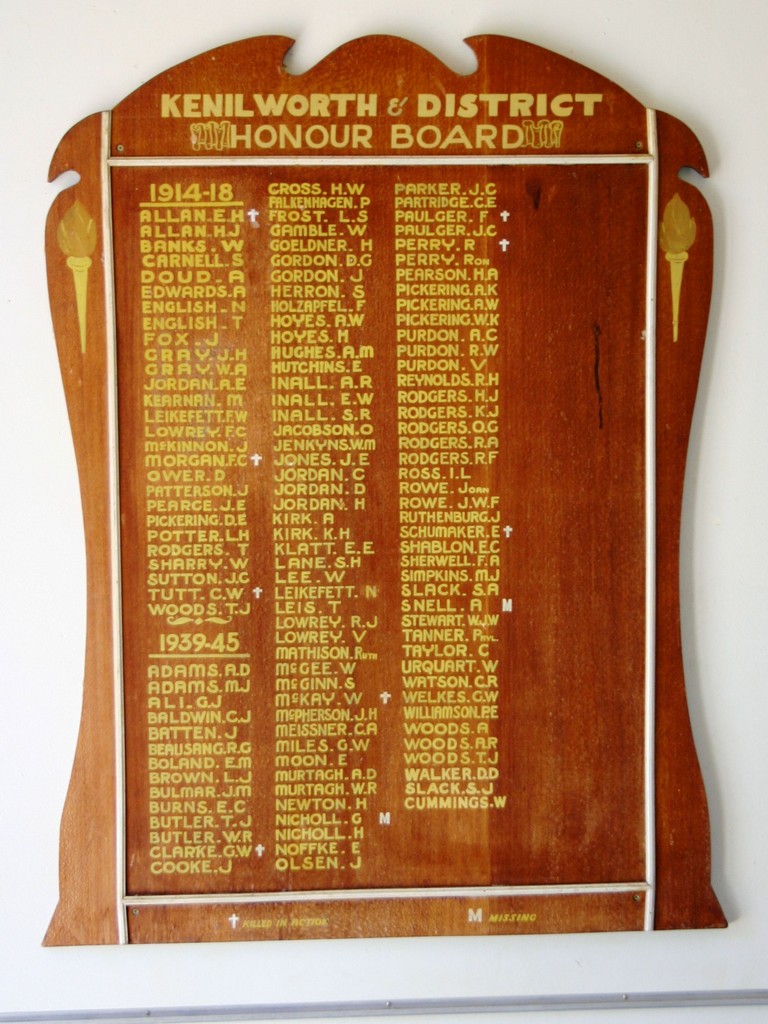 KENILWORTH & DISTRICT
HONOUR BOARD
1914-18
ALLAN.E.H ✝
ALLAN.H.J
BANKS.W
CARNELL.S
DOUD.A
EDWARDS.A
ENGLISH.N
ENGLISH.T
FOX.J
GRAY.J.H
GRAY.W.A
JORDAN.A.E
KEARNAN.M
LEIKEFETT.F.W
LOWREY.F.C
McKINNON.J
MORGAN.F.C ✝
OWER.D
PATTERSON.J
PEARCE.J.E
PICKERING.D.E
POTTER.L.H
RODGERS.T
SHARRY.W
SUTTON.J.C
TUTT.C.W ✝
WOODS.T.J
1939-45
ADAMS.A.D
ADAMS.M.J
ALI.G.J
BALDWIN.C.J
BATTEN.J
BEAUSANG.R.G
BOLAND.E.M
BROWN.L.J
BULMAR.J.M
BURNS.E.C
BUTLER.T.J
BUTLER.W.R
CLARKE.G.W ✝
COOKE.J
GROSS.H.W
FALKENHAGEN.P
FROST.L.S
GAMBLE.W
GOELDNER.H
GORDON.D.G
GORDON.J
HERRON.S
HOLZAPFEL.F
HOYES.A.W
HOYES.H
HUGHES.A.M
HUTCHINS.E
INALL.A.R
INALL.E.W
INALL.S.R
JACOBSON.O
JENKYNS.W.M
JONES.J.E
JORDAN.C
JORDAN.D
JORDAN.H
KIRK.A
KIRK.K.H
KLATT.E.E
LANE.S.H
LEE.W
LEIKEFETT.N
LEIS.T
LOWREY.R.J
LOWREY.V
MATHISON.RUTH
McGEE.W
McGINN.S
McKAY.W ✝
McPHERSON.J.H
MEISSNER.C.A
MILES.G.W
MOON.E
MURTAGH.A.D
MURTAGH.W.R
NEWTON.H
NICHOLL.G M
NICHOLL.H
NOFFKE.E
OLSEN.J
PARKER.J.C
PARTRIDGE.C.E
PAULGER.F ✝
PAULGER.J.C
PERRY.R ✝
PERRY.RON
PEARSON.H.A
PICKERING.A.K
PICKERING.A.W
PICKERING.W.K
PURDON.A.C
PURDON.R.W
PURDON.V
REYNOLDS.R.H
RODGERS.H.J
RODGERS.K.J
RODGERS.O.G
RODGERS.R.A
RODGERS.R.F
ROSS.I.L
ROWE.JOAN
ROWE.J.W.F
RUTHENBURG.J
SCHUMAKER.E ✝
SHABLON.E.C
SHERWELL.F.A
SIMPKINS.M.J
SLACK.S.A
SNELL.A M
STEWART.W.J.W
TANNER.PHYL.
TAYLOR.C
URQUART.W
WATSON.C.R
WELKES.G.W
WILLIAMSON.P.E
WOODS.A
WOODS.A.R
WOODS.T.J
WALKER.D.D
SLACK.S.J
CUMMINGS.W
✝ KILLED IN ACTION
M MISSING